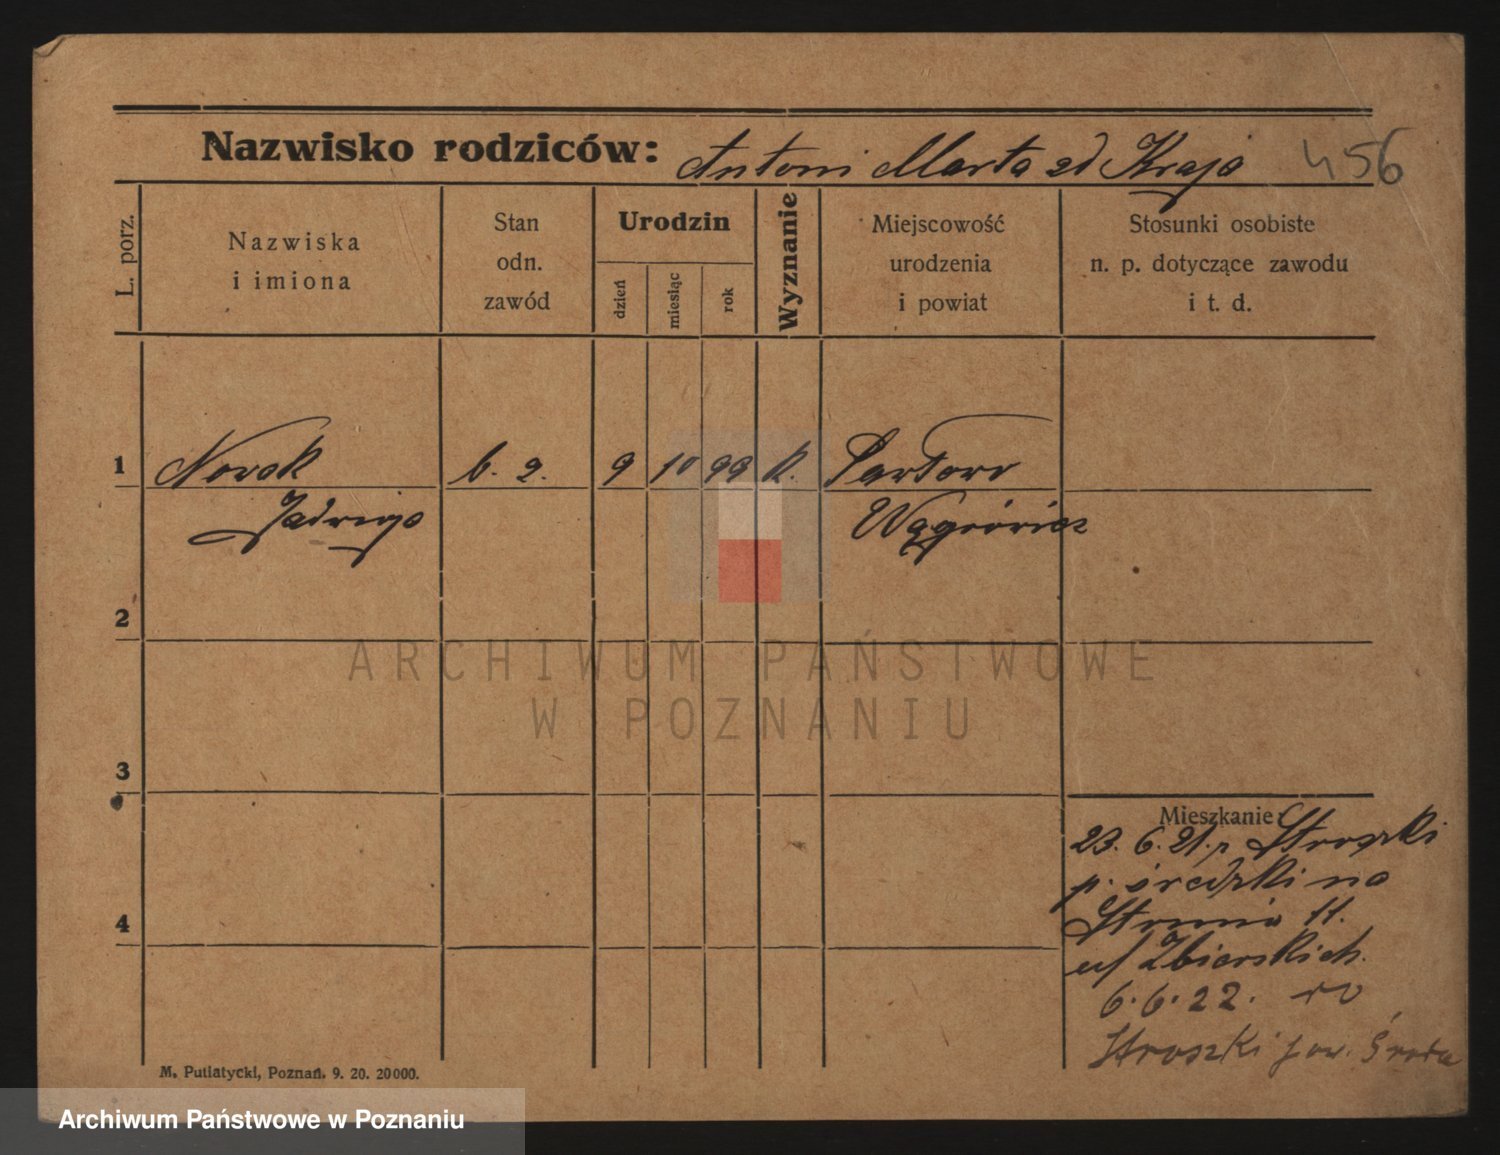 Nazwisko rodziców: Antoni Marta zd Kraja 456
L. porz.
Nazwiska
i imiona
Stan
odn.
zawód
Urodzin
dzień
miesiąc
rok
Wyznanie
Miejscowość
urodzenia
i powiat
Stosunki osobiste
n. p. dotyczące zawodu
i t. d.
1 Nowak b. z. 9 10 99 k.
Jadwiga Wągrówiec
2
ARCHIWUM PAŃSTWOWE
W POZNANIU
3
Mieszkanie:
23. 6. 21. z Stroszki
p. średzki na
4
Strumia 11.
u/ Zbierskich.
6. 6. 22. do
Stroszki pow. Środa
M. Putiatycki, Poznań. 9. 20. 20000.
Archiwum Państwowe w Poznaniu